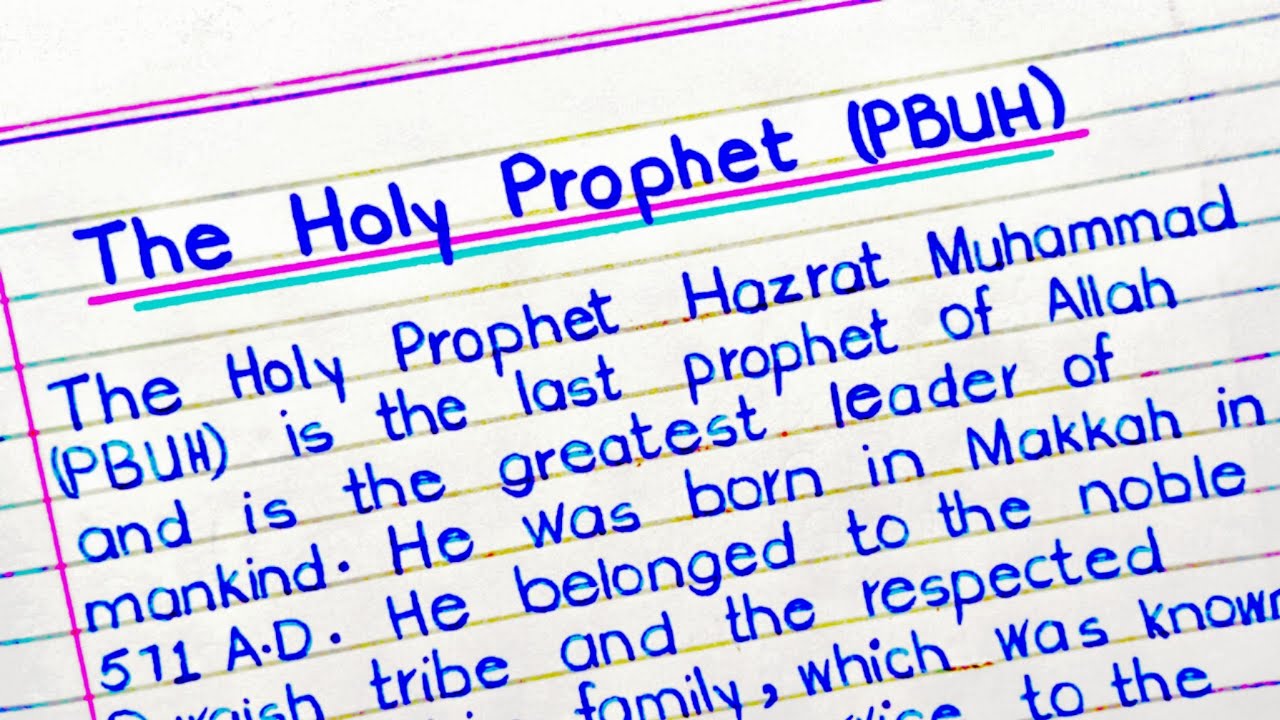 The Holy Prophet (PBUH)
The Holy Prophet Hazrat Muhammad
(PBUH) is the last prophet of Allah
and is the greatest leader of
mankind. He was born in Makkah in
571 A.D. He belonged to the noble
tribe and the respected
family, which was known
to the